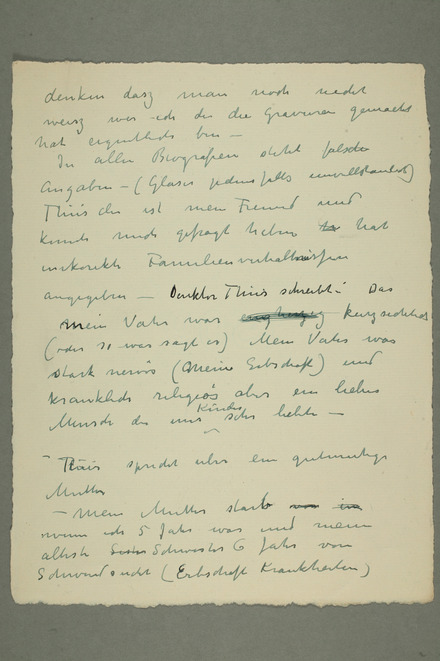 denken dasz man noch nicht
weisz wer ich der die Gravuren gemacht
hat eigentlich bin —
In allen Biografien steht falsche
Angaben — (Glaser jedenfalls unvollständig)
Thiis der ist mein Freund und
kunde mich gefragt haben hat
inkorekte Familienverhältnissen
angegeben — Direktor Thiis schreibt: Das
mein Vater war kurzsichtig
(oder so was sagt er) Mein Vater war
stark nervös (Meine Erbschaft) und
kranklich religiös aber ein liebes
Mensch der uns Kinder sehr liebte —
Thiis spricht uber ein gutmutige
Mutter
— Mein Mutter starb
wenn ich 5 Jahr war und meine
alteste Schwester 6 Jahr von
Schwindsucht (Erbschaft Krankheiten)